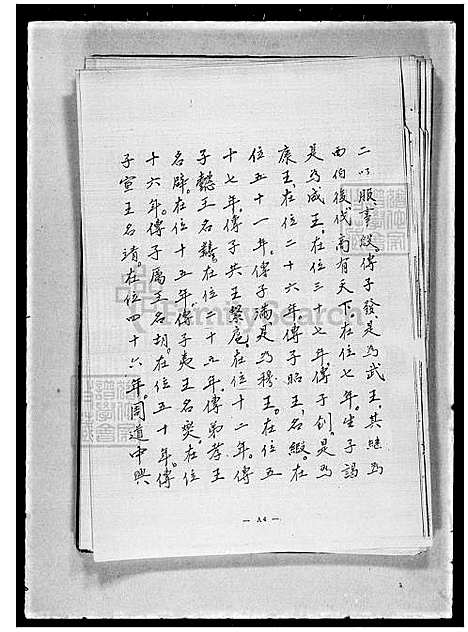 二以服事殷。傳子發是為武王。其繼為
西伯後伐商有天下。在位七年。生子誦
是為成王。在位三十七年。傳子釗。是為
康王。在位二十六年。傳子昭王名瑕。在
位五十一年。傳子滿是為穆王。在位五
十七年。傳子共王繄扈。在位十二年。傳
子懿王名囏。在位二十五年。傳弟孝王
名辟。在位十五年。傳子夷王名燮。在位
十六年。傳子厲王名胡。在位五十年。傳
子宣王名靖。在位四十六年。周道中興
— A4 —
FamilySearch